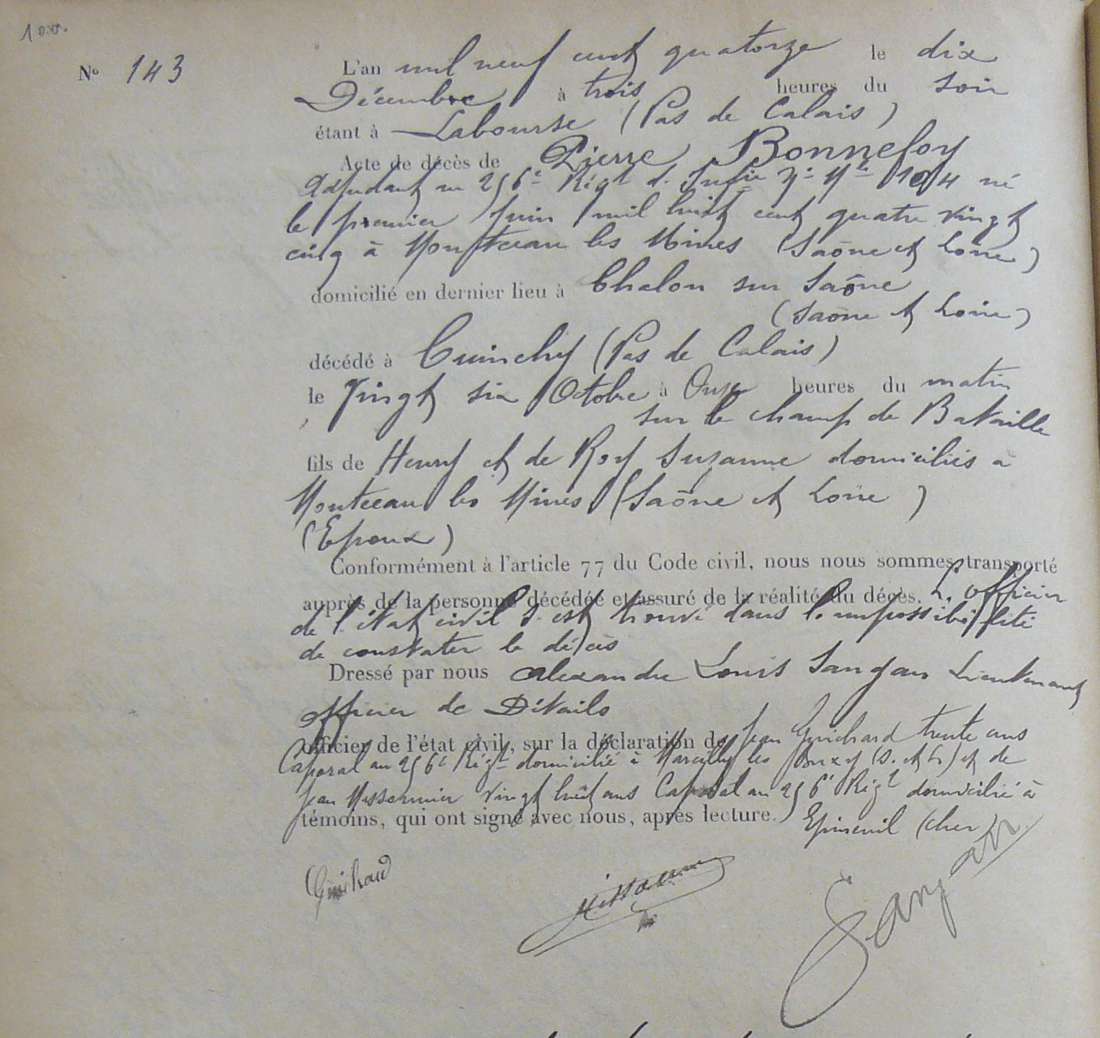 100.
N° 143
L'an mil neuf cent quatorze le dix
Décembre à trois heures du soir
étant à Labourse (Pas de Calais)
Acte de décès de Pierre Bonnefoy
Adjudant au 256e Régt d'Infie Mle 104 né
le premier Juin mil huit cent quatre vingt
cinq à Montceau les Mines (Saône et Loire)
domicilié en dernier lieu à Chalon sur Saône
(Saône et Loire)
décédé à Cuinchy (Pas de Calais)
le Vingt six Octobre à Onze heures du matin
sur le champ de Bataille
fils de Henry et de Roy Suzanne domiciliés à
Montceau les Mines (Saône et Loire)
(Epoux)
Conformément à l'article 77 du Code civil, nous nous sommes transporté
auprès de la personne décédée et assuré de la réalité du décès. L'officier
de l'état civil s'est trouvé dans l'impossibilité
de constater le décès
Dressé par nous Alexandre Louis Sanjan Lieutenant
officier de Détails
officier de l'état civil, sur la déclaration de Jean Guichard trente ans
Caporal au 256e Régt domicilié à Marcilly les (S. et L) et de
Jean vingt huit ans Caporal au 256e Régt domicilié à
témoins, qui ont signé avec nous, après lecture. Epineuil (cher)
Guichard
Sanjan